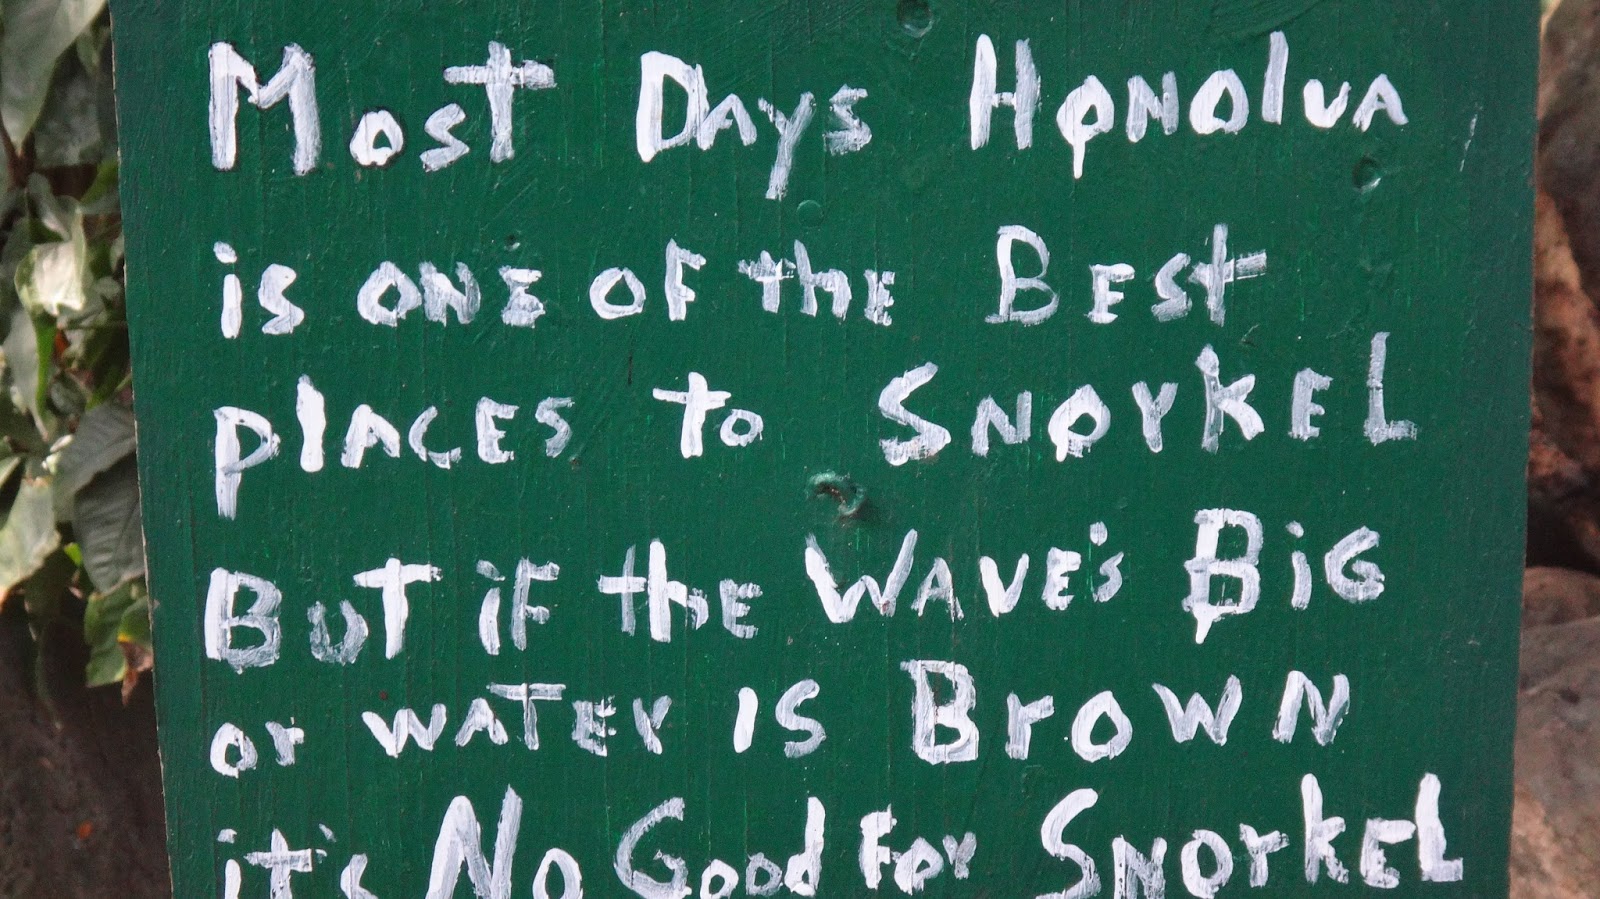 Most Days Honolua
is one of the Best
places to Snorkel
But if the Wave's Big
or water is Brown
it's No Good For Snorkel